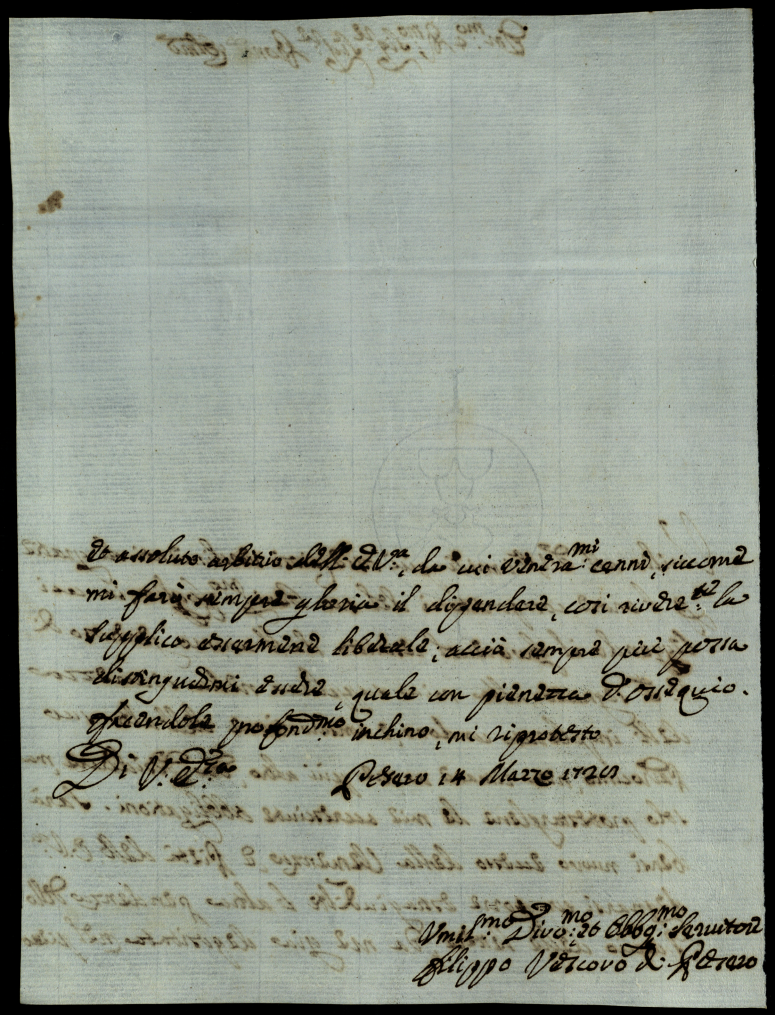 et assoluto arbitrio dell' E. V.ra, da cui venera:mi cenni, siccome
mi farò sempre gloria il dipendere, così rivere:te la
supplico essermene liberale; acciò sempre più possa
distinguermi essere, quale con pienezza d'ossequio
facendole profond:mo inchino, mi riprotesto
Di V. E.za Pesaro 14 Marzo
Umil:mo Divo:mo et Obbg:mo Servitore
Filippo Vescovo di Pesaro